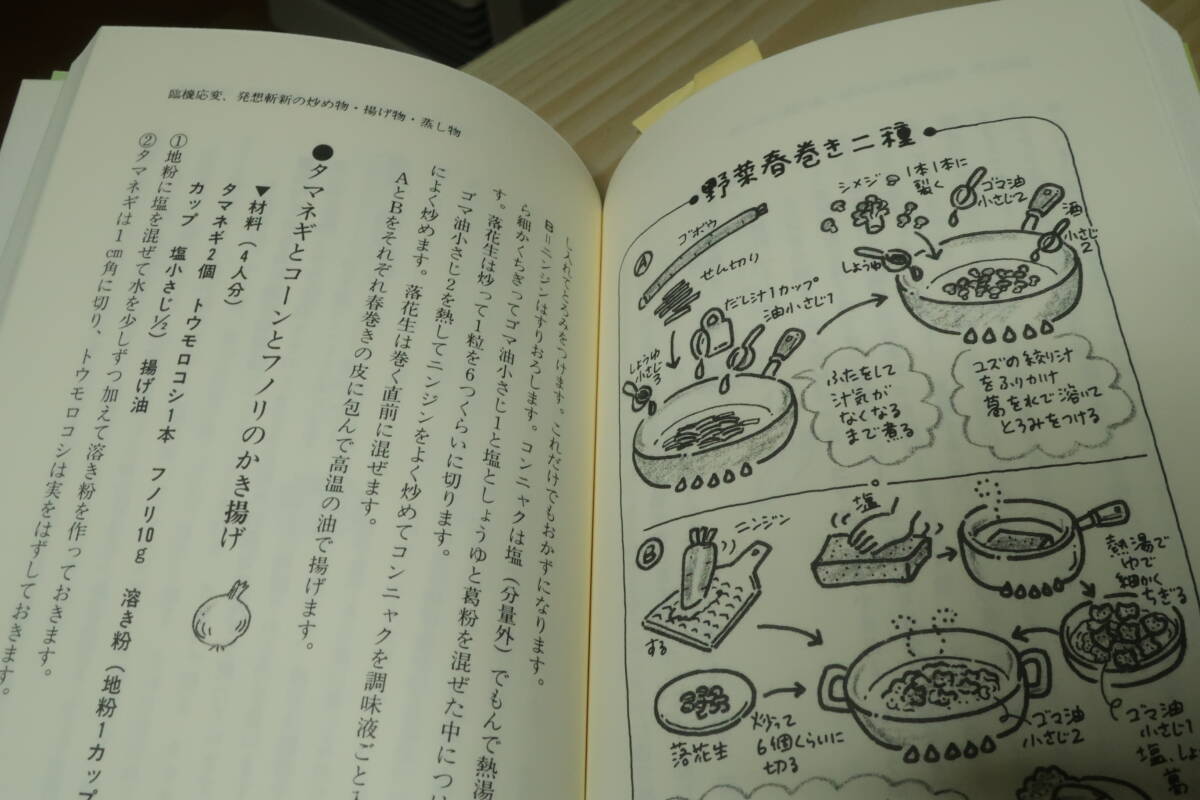 野菜春巻き二種
シメジ
1本1本に
裂く
ゴマ油
小さじ2
酒
小さじ
2
しょうゆ
A
ゴボウ
せん切り
だし汁1カップ
油小さじ1
しょうゆ
小さじ3
ふたをして
汁気が
なくなる
まで煮る
ユズの絞り汁
をふりかけ
葛を水で溶いて
とろみをつける
B
ニンジン
する
塩
熱湯で
ゆで
細かく
ちぎる
落花生
炒って
6個くらいに
切る
ゴマ油
小さじ2
ゴマ油
小さじ1
塩、しょ
葛
臨機応変、発想斬新の炒め物・揚げ物・蒸し物
し入れてとろみをつけます。これだけでもおかずになります。
B＝ニンジンはすりおろします。コンニャクは塩（分量外）でもんで熱湯
ら細かくちぎってゴマ油小さじ1と塩としょうゆと葛粉を混ぜた中につ
す。落花生は炒って1粒を6つくらいに切ります。
ゴマ油小さじ2を熱してニンジンをよく炒めてコンニャクを調味液ごと入
によく炒めます。落花生は巻く直前に混ぜます。
AとBをそれぞれ春巻きの皮に包んで高温の油で揚げます。
●タマネギとコーンとフノリのかき揚げ
▼材料（4人分）
タマネギ2個　トウモロコシ1本　フノリ10g　溶き粉（地粉1カップ
カップ　塩小さじ1/2）　揚げ油
①地粉に塩を混ぜて水を少しずつ加えて溶き粉を作っておきます。
②タマネギは1cm角に切り、トウモロコシは実をはずしておきます。